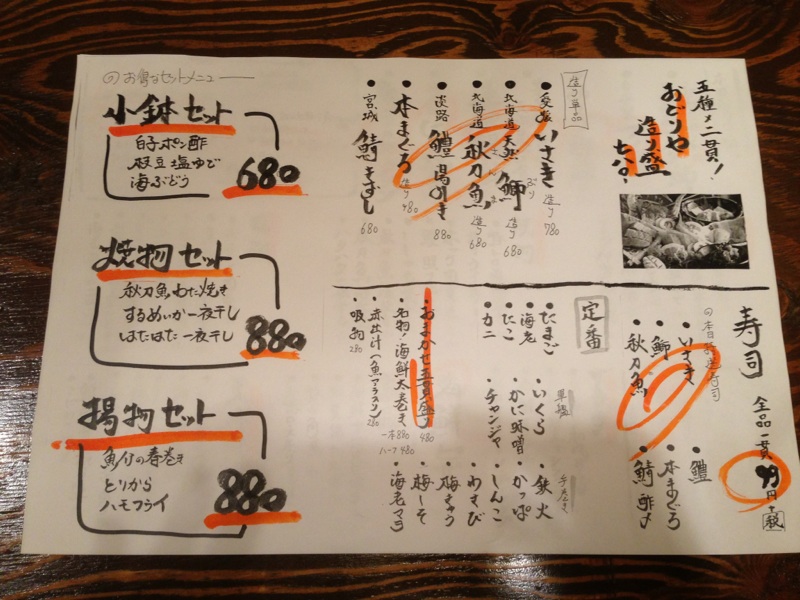 五種〆二貫!
おどりや
造り盛
七八〇
造り単品
愛媛 いさき 造り 780
北海道 天然 鰤 ぶり 造り 680
北海道 秋刀魚 造り 680
淡路 鱧 湯引き 880
本まぐろ 造り 480
宮城 鯖きずし 680
寿司 全品一貫 99円+税
本日
いさき
鰤
秋刀魚
鱧
本まぐろ
鯖 酢〆
定番
たまご
海老
たこ
カニ
軍艦
いくら
かに味噌
チャンジャ
手巻き
鉄火
かっぱ
しんこ
わさび
梅きゅう
梅しそ
海老マヨ
おまかせ五貫盛り 480
名物!海鮮太巻き 一本880 ハーフ480
赤出汁(魚アラスリ) 280
吸物 280
お得なセットメニュー
小鉢セット
白子ポン酢
枝豆塩ゆで
海ぶどう
680
焼物セット
秋刀魚わた焼き
するめいか一夜干し
はたはた一夜干し
880
揚物セット
魚介の春巻き
とりから
ハモフライ
880